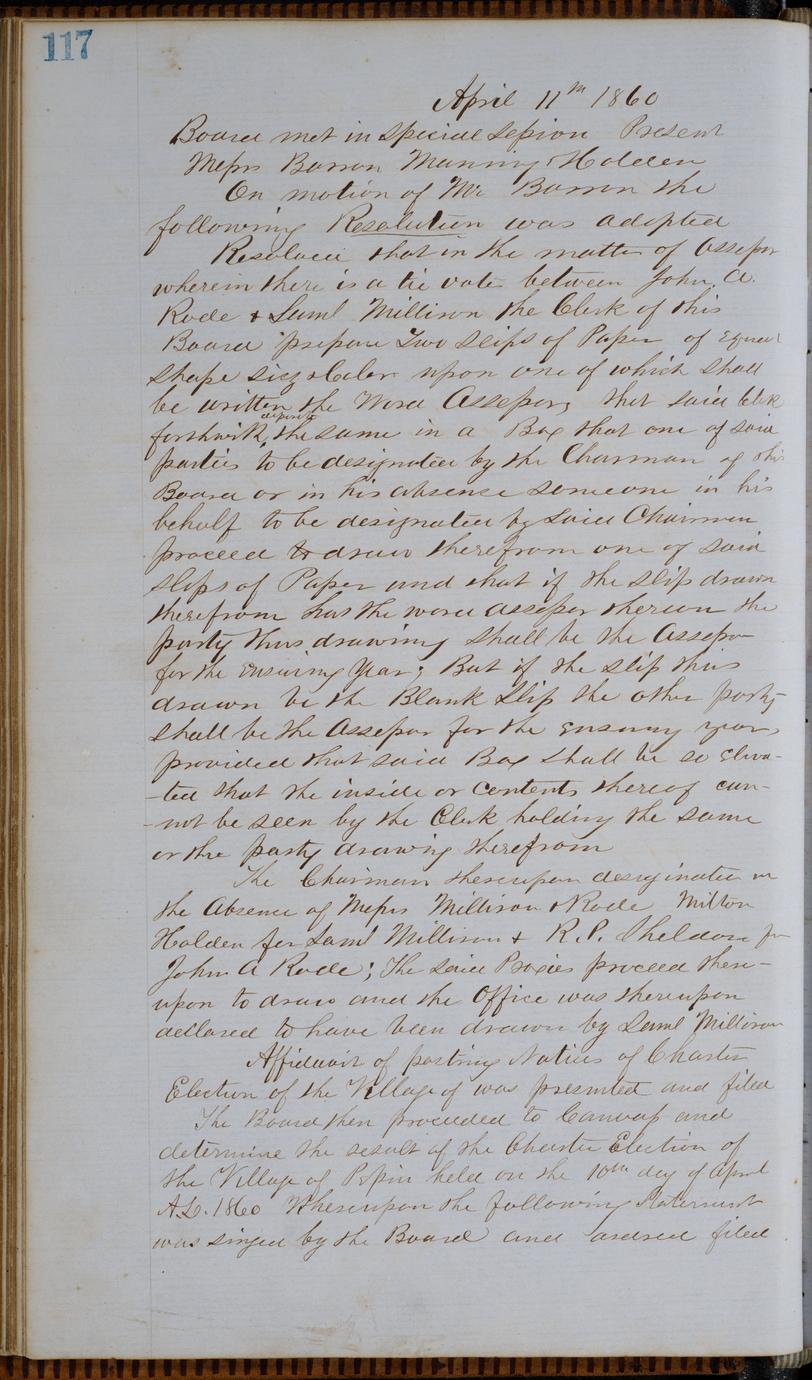 117
April 11th 1860
Board met in special session Present
Messrs Barron Manning & Holden
On motion of Mr Barron the
following Resolution was adopted
Resolved that in the matter of Assessor
wherein there is a tie vote between John A.
Rode & Saml Millison the Clerk of this
Board prepare Two Slips of Paper of equal
shape size & Color upon one of which shall
be written the Word Assessor, that said Clerk
forthwith deposite the same in a Box that one of said
parties to be designated by the Chairman of this
Board or in his absence someone in his
behalf to be designated by said Chairman
proceed to draw therefrom one of said
slips of Paper and that if the slip drawn
therefrom has the word assessor thereon the
party thus drawing shall be the Assessor
for the ensuing Year; But if the slip thus
drawn be the Blank Slip the other party
shall be the Assessor for the ensuing year,
provided that said Box shall be so eleva-
-ted that the inside or contents thereof can-
-not be seen by the Clerk holding the same
or the party drawing therefrom
The Chairman thereupon designated in
the Absence of Messrs Millison & Rode Milton
Holden for Saml Millison & R.P. Sheldon for
John A Rode; The said Proxies proceed there-
upon to draw and the Office was thereupon
declared to have been drawn by Saml Millison
Affidavit of posting Notices of Charter
Election of the Village of was presented and filed
The Board then proceeded to Canvass and
determine the result of the Charter Election of
the Village of Pepin held on the 10th day of April
A.D. 1860 Whereupon the following Statement
was singed by the Board and ordered filed